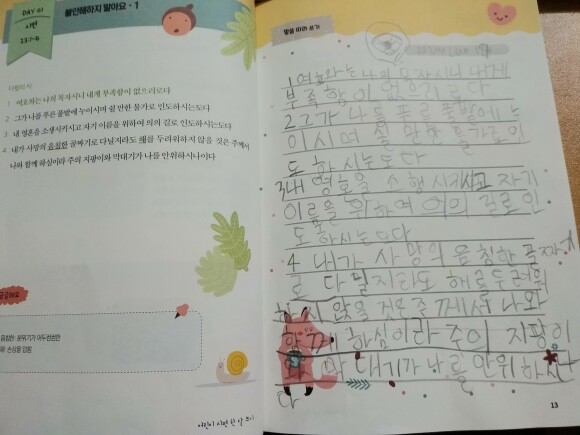 DAY 01
시편
23:1-4
불안해하지 말아요 · 1
다윗의 시
1 여호와는 나의 목자시니 내게 부족함이 없으리로다
2 그가 나를 푸른 풀밭에 누이시며 쉴 만한 물가로 인도하시는도다
3 내 영혼을 소생시키시고 자기 이름을 위하여 의의 길로 인도하시는도다
4 내가 사망의 음침한 골짜기로 다닐지라도 해를 두려워하지 않을 것은 주께서
나와 함께 하심이라 주의 지팡이와 막대기가 나를 안위하시나이다
궁금해요
음침한: 분위기가 어두컴컴한
해: 손상을 입음
어린이 시편 한 달 쓰기
말씀 따라 쓰기
1 여호와는 나의 목자시니 내게
부족함이 없으리로다
2 그가 나를 푸른 풀밭에 누
이시며 쉴 만한 물가로 인
도 하시는도다
3 내 영호을 소행시키시고 자기
이르을 위하여 의의 길로 인
도 하시는도다
4 내가 사망의 음침한 골짜기
로 다닐지라도 해를 두려워
하지 않을 것은 주께서 나와
함께 하심이라 주의 지팡이
와 막대기가 나를 안위하시
다
13